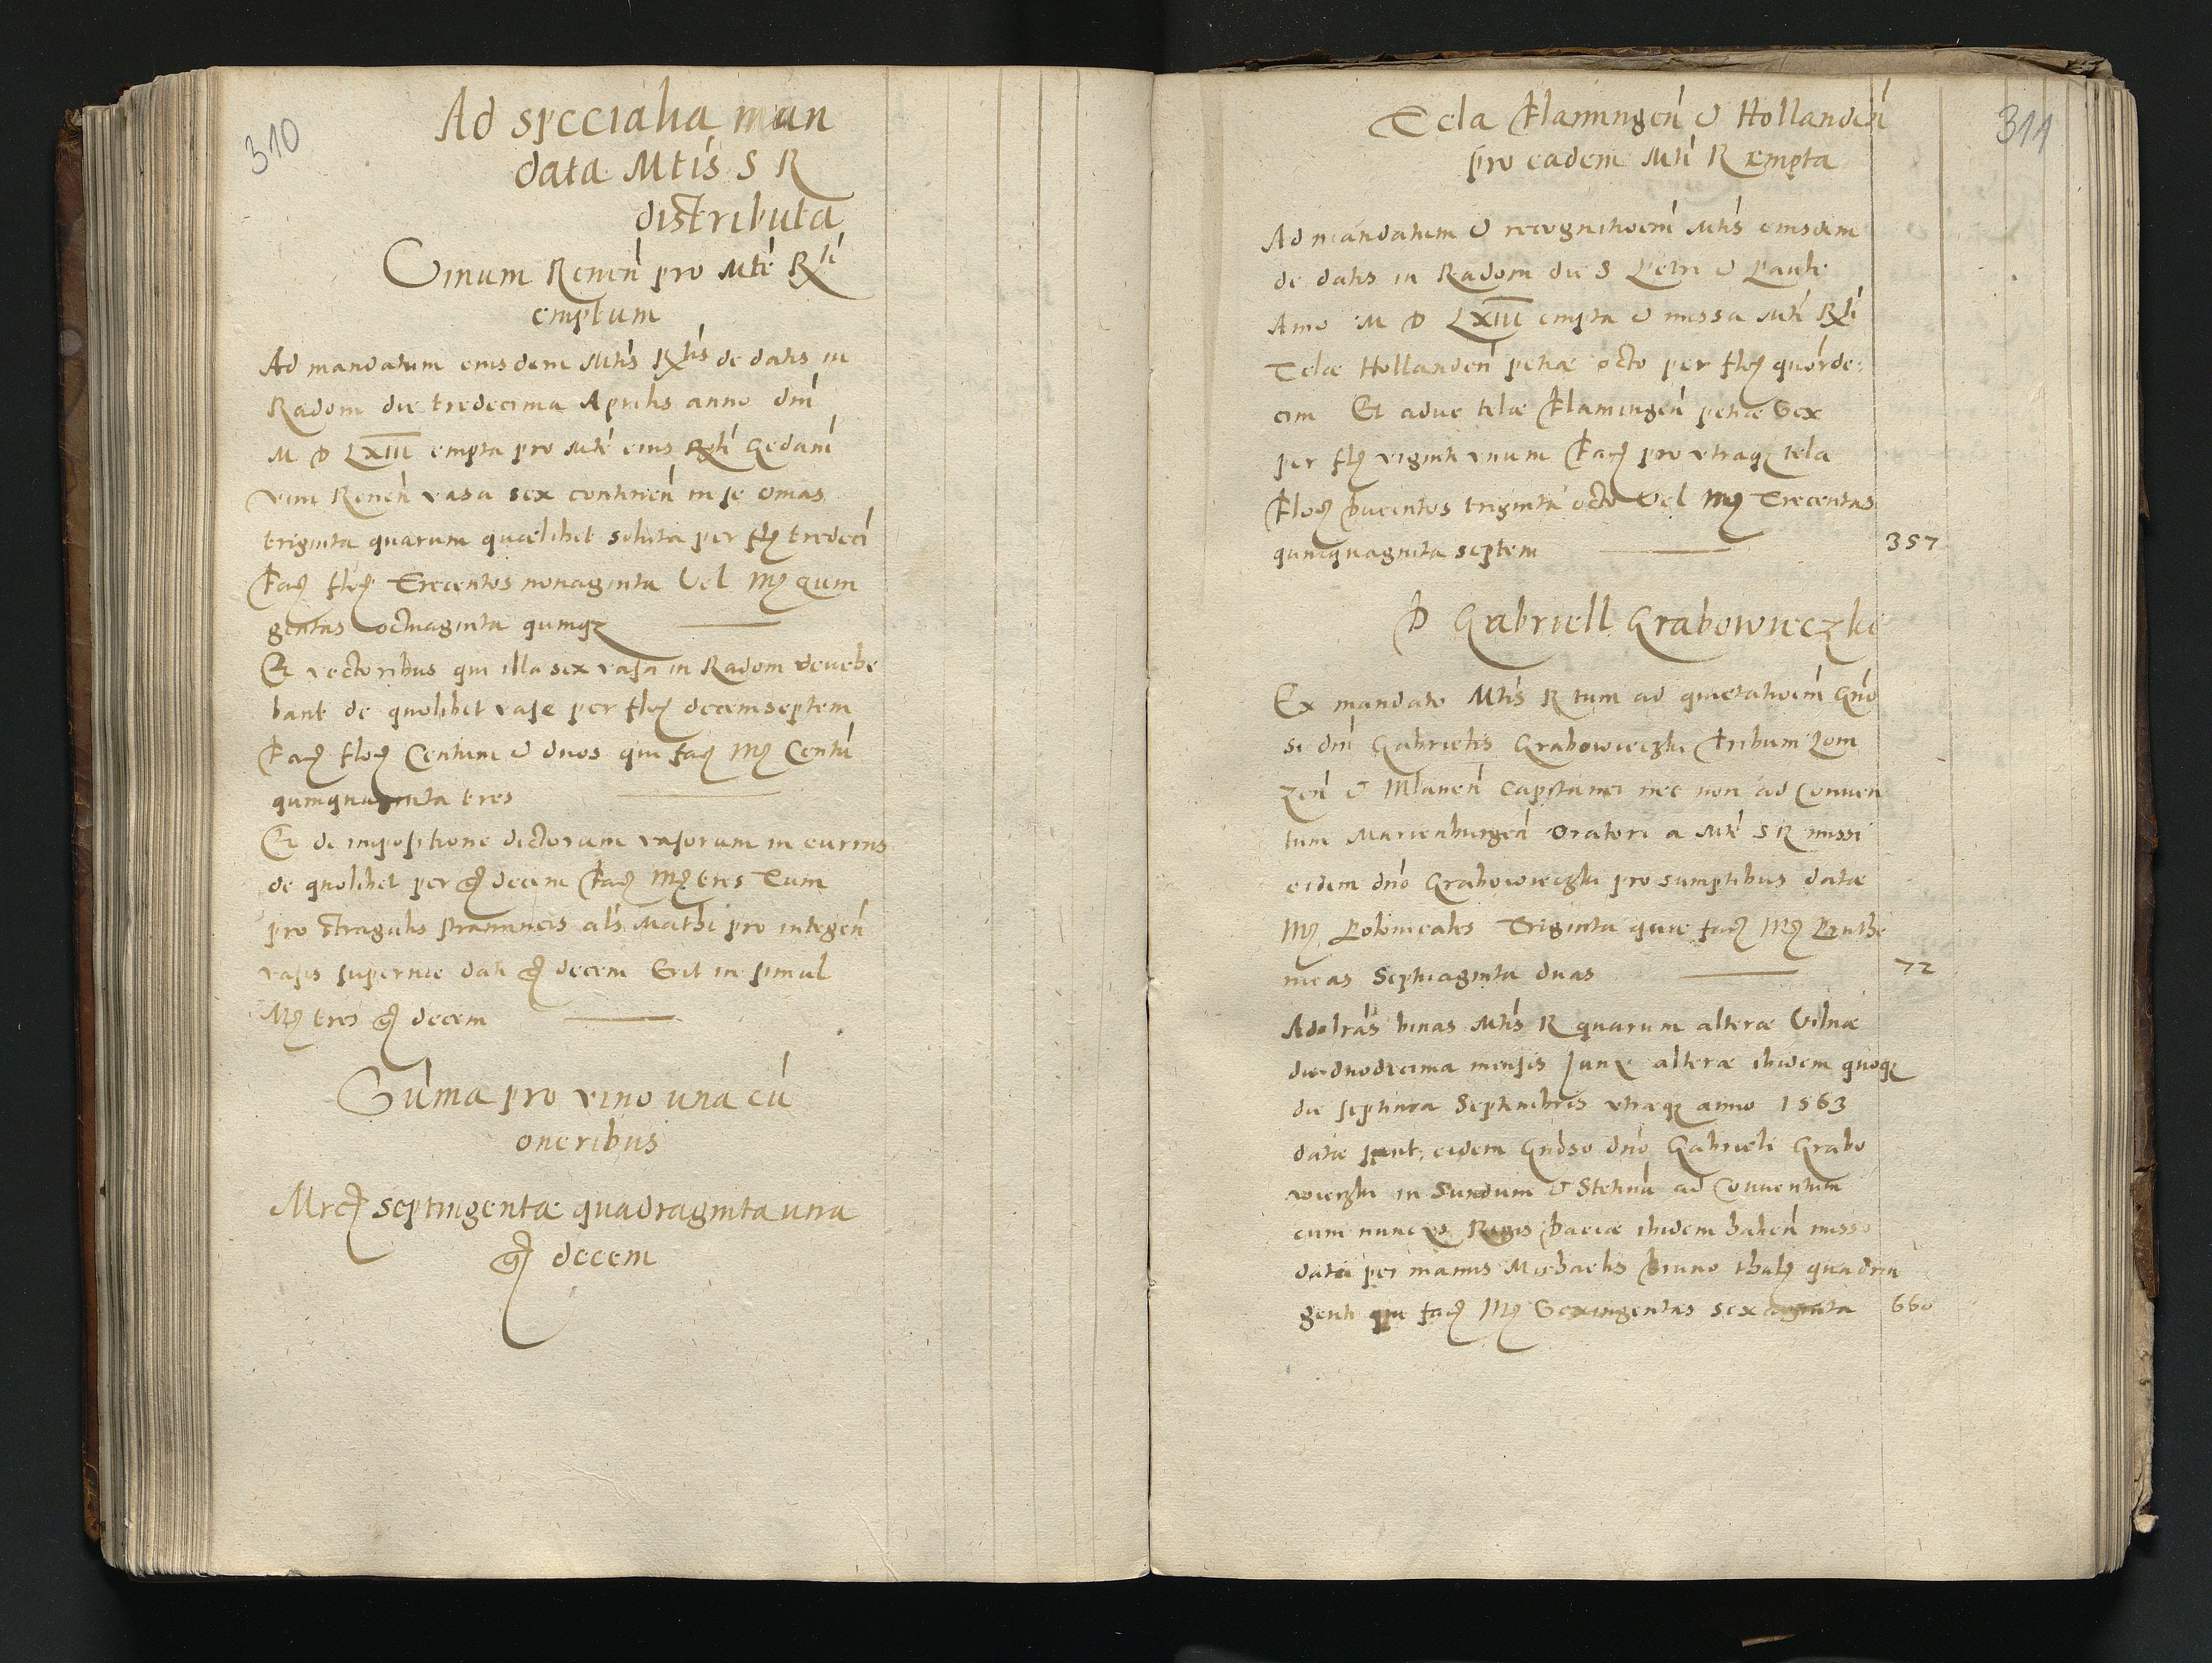 310
Ad specialia man
data Mtis S R
distributa
Vinum Renen pro Mte Rli
emptum
Ad mandatum eiusdem Mtis Rlis de datis in
Radom die tredecima Aprilis anno dni
M D LXIII empta pro Mte eius Rli Gedani
vini Renen vasa sex continen in se omas
triginta quarum quaelibet soluta per fl tredeci
Fac floc Trecentos nonaginta Vel Mc quin
gentas octuaginta quinqz
Et vectoribus qui illa sex vasa in Radom devehe
bant de quolibet vase per floc decemseptem
Fac floc Centum & duos qui fac Mc Centu
quinquaginta tres
Et de impositione dictorum vasorum in currus
de quolibet per gr decem Fac Mc tres Tum
pro stragulis stramineis als Mathi pro integen
vasis superne dati gr decem Erit in simul
Mc tres gr decem
Suma pro vino una cu
oneribus
Mrc septingentae quadraginta una
gr decem
311
Tela Flamingen & Hollanden
pro eadem Mti R empta
Ad mandatum & recognitioem Mtis eiusdem
de datis in Radom die S Petri & Pauli
Anno M D LXIII empta & missa Mti Rli
Telae Hollanden petiae octo per floc quorde:
cim Et aduc telae Flamingen petiae Sex
per flc viginti unum Fac pro utraqz tela
Floc Ducentos triginta octo Vel Mc Trecentas
quinquaginta septem 357
D Gabriell Grabowieczki
Ex mandato Mtis R tum ad quietatioem Gno
si dni Gabrielis Grabowieczki Tribuni Lom
zen & Mlauen Capitanei nec non ad Conuen
tum Marienburgen Oratori a Mte S R missi
eidem dno Grabowieczki pro sumptibus datae
Mc Polonicales Triginta quae fac Mc Pruthe
nicas Septuaginta duas 72
Ad lras binas Mtis R quarum alterae Vilnae
die duodecima mensis Juny alterae ibidem quoqz
die septima Septembris utraeqz anno 1563
datae sunt, eidem Gnoso dno Gabrieli Grabo
wieczki in Sundum & Stetinu ad Conventum
cum nuncys Regis Daciae ibidem haben misso
dati per manus Michaelis Bruno thalc quadrin
genti qui fac Mc Sexingentas sexaginta 660